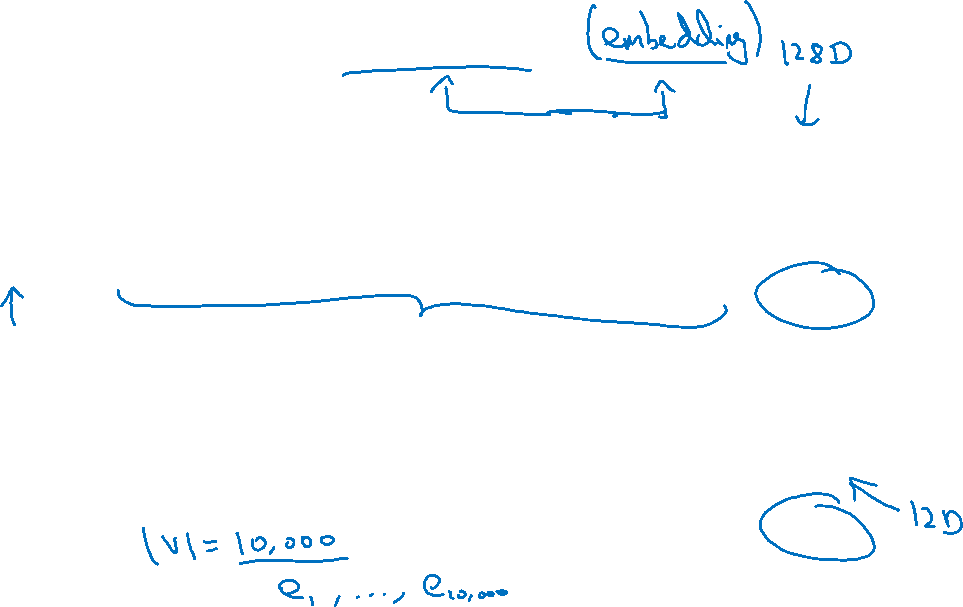 (embedding) 128D
12D
|V| = 10,000
e1, ..., e10,000